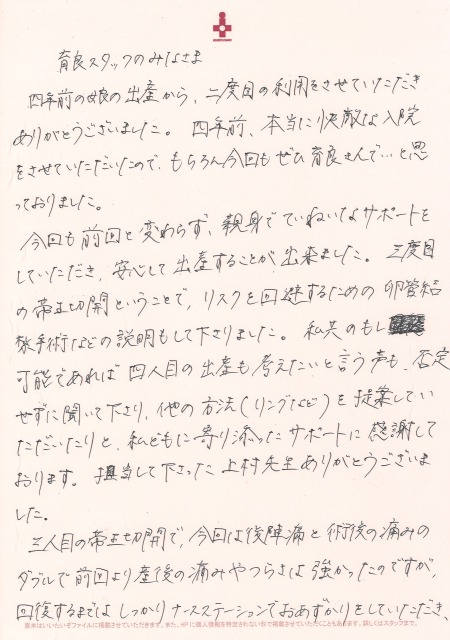 育良スタッフのみなさま
四年前の娘の出産から、二度目の利用をさせていただき
ありがとうございました。四年前、本当に快敵な入院
をさせていただいたので、もちろん今回もぜひ育良さんで…と思
っておりました。
今回も前回と変わらず、親身でていねいなサポートを
していただき、安心して出産することが出来ました。三度目
の帝王切開ということで、リスクを回避するための卵管結
紮手術などの説明もして下さりました。私共のもし
可能であれば四人目の出産も考えたいと言う声も、否定
せずに聞いて下さり、他の方法(リングなど)を提案してい
ただいたりと、私どもに寄り添ったサポートに感謝して
おります。担当して下さった上村先生ありがとうございま
した。
三人目の帝王切開で、今回は後陣痛と術後の痛みの
ダブルで前回より産後の痛みやつらさは強かったのですが、
回復するまではしっかりナースステーションでおあずかりをしていただき、
原本はいいたいぞファイルに掲載させていただきます。また、HPに個人情報を特定されない形で掲載させていただくこともあります。詳しくはスタッフまで。